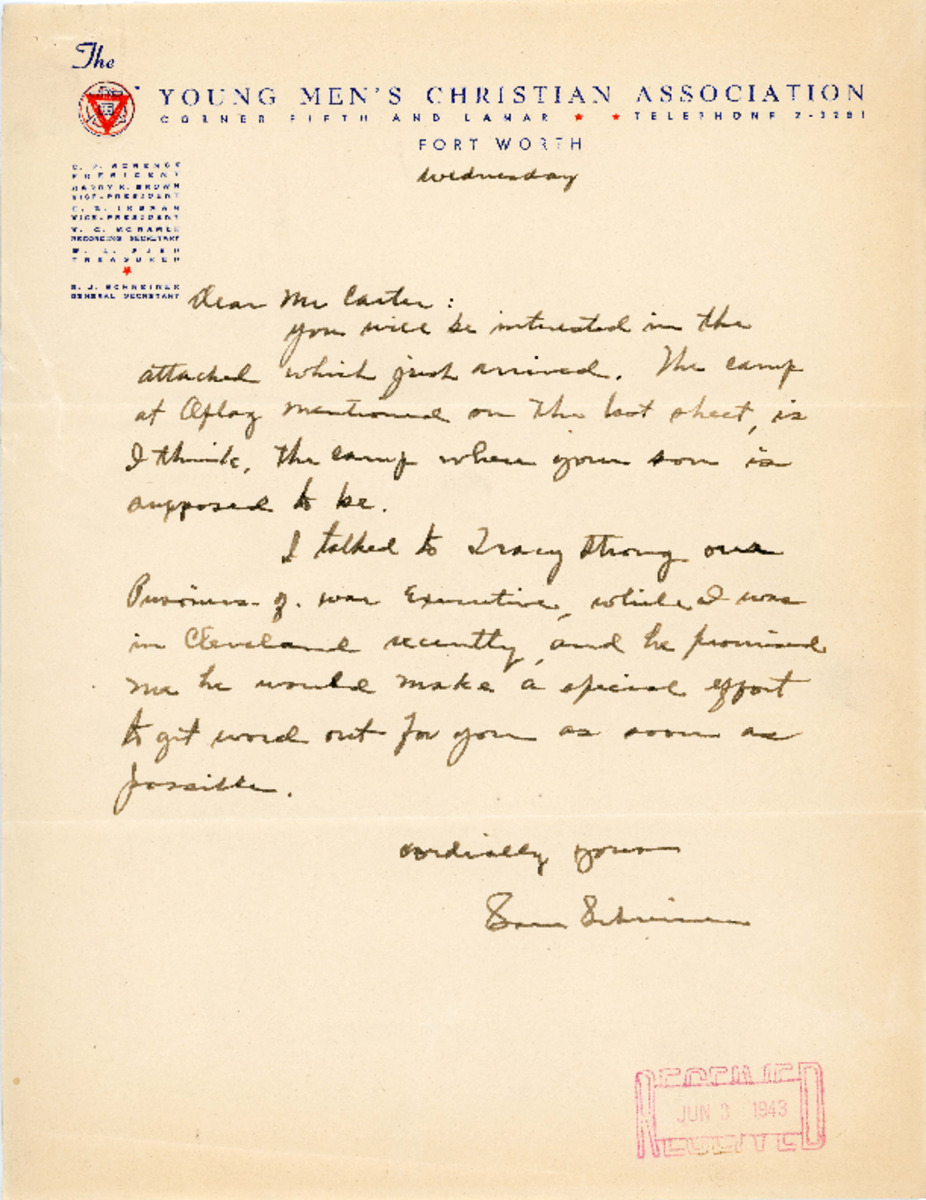 The
YOUNG MEN'S CHRISTIAN ASSOCIATION
CORNER FIFTH AND LAMAR ★ ★ TELEPHONE 2-3281
FORT WORTH
Wednesday
PRESIDENT
HARRY K. BROWN
VICE-PRESIDENT
VICE-PRESIDENT
RECORDING SECRETARY
TREASURER
S. J. SCHREINER
GENERAL SECRETARY
Dear Mr Carter:
You will be interested in the
attached which just arrived. The camp
at Oflag mentioned on the last sheet, is
I think, the camp where your son is
supposed to be.
I talked to Tracy Strong our
Prisoners-of-war Executive, while I was
in Cleveland recently, and he promised
me he would make a special effort
to get word out for you as soon as
possible.
Cordially yours
Sam Schreiner
RECEIVED
JUN 3 1943
RECEIVED